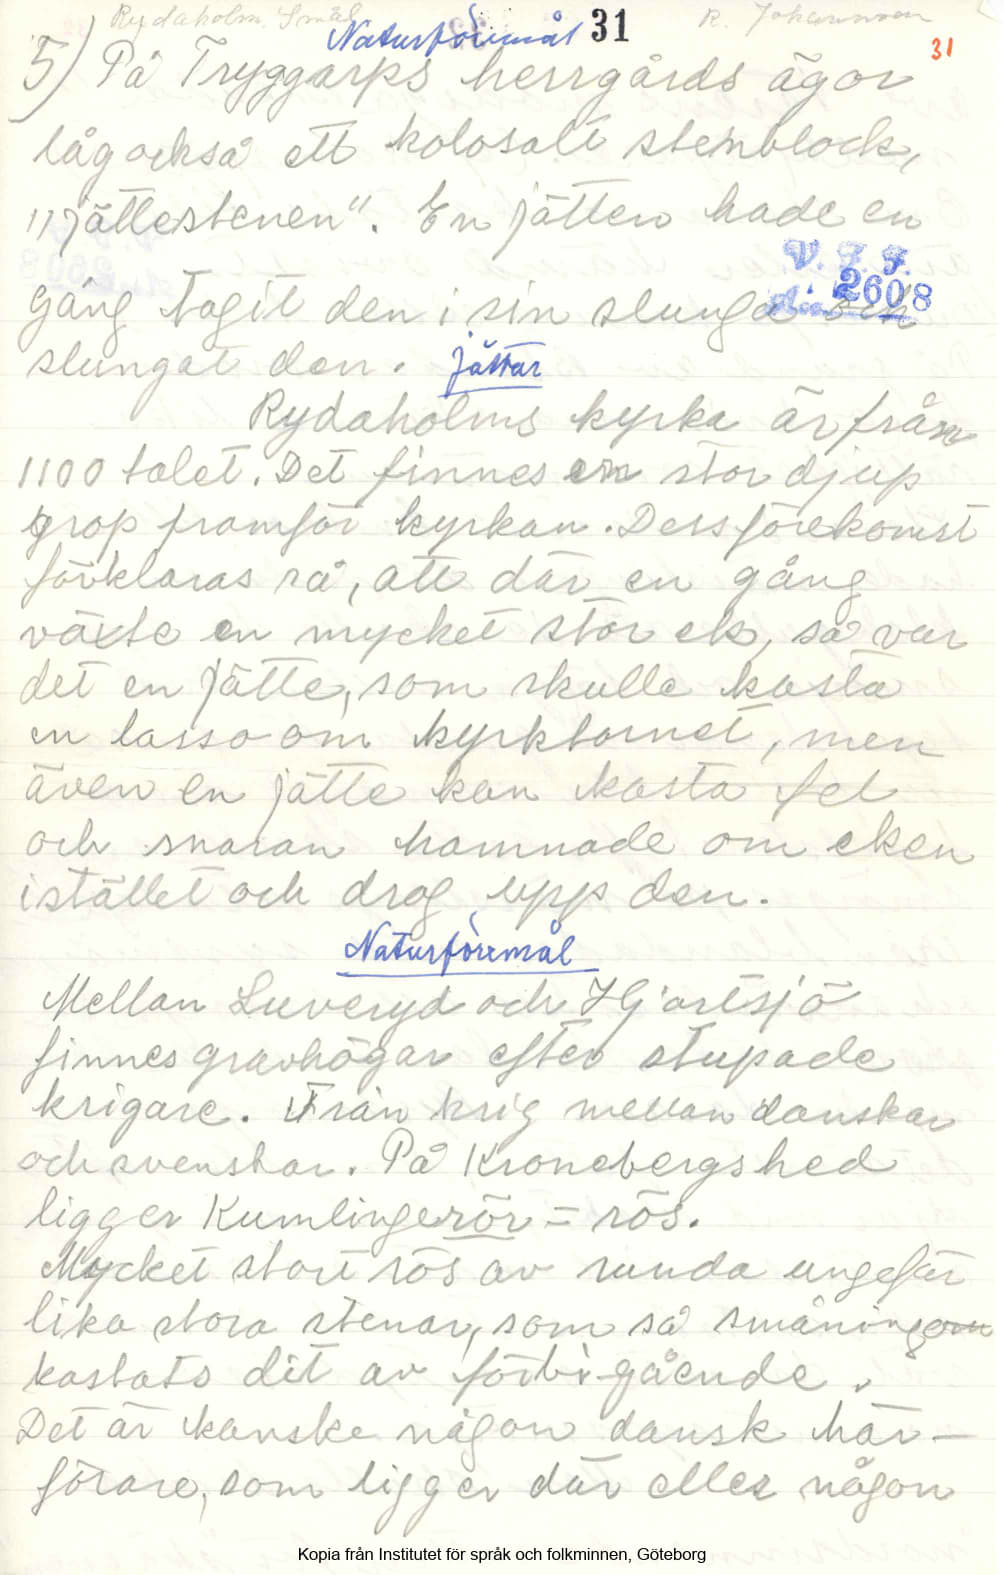 Rydaholm. Smål. R. Johansson
Naturföremål 31
31
5) På Tryggarps herrgårds ägor
låg också ett kolosalt stenblock,
"jättestenen". En jätten hade en
V. F. F.
Acc. 2608
gång tagit den i sin slunga och
slungat den. Jättar
Rydaholms kyrka är från
1100 talet. Det finnes en stor djup
grop framför kyrkan. Dess förekomst
förklaras så, att där en gång
växte en mycket stor ek, så var
det en jätte, som skulle kasta
en lasso om kyrktornet, men
även en jätte kan kasta fel
och snaran hamnade om eken
istället och drog upp den.
Naturföremål
Mellan Luveryd och Hjortsjö
finnes gravhögar efter stupade
krigare. Från krig mellan danskar
och svenskar. På Kronobergshed
ligger Kumlingerör = rös.
Mycket stort rös av runda ungefär
lika stora stenar, som så småningom
kastats dit av förbi-gående.
Det är kanske någon dansk här-
förare, som ligger där eller någon
Kopia från Institutet för språk och folkminnen, Göteborg